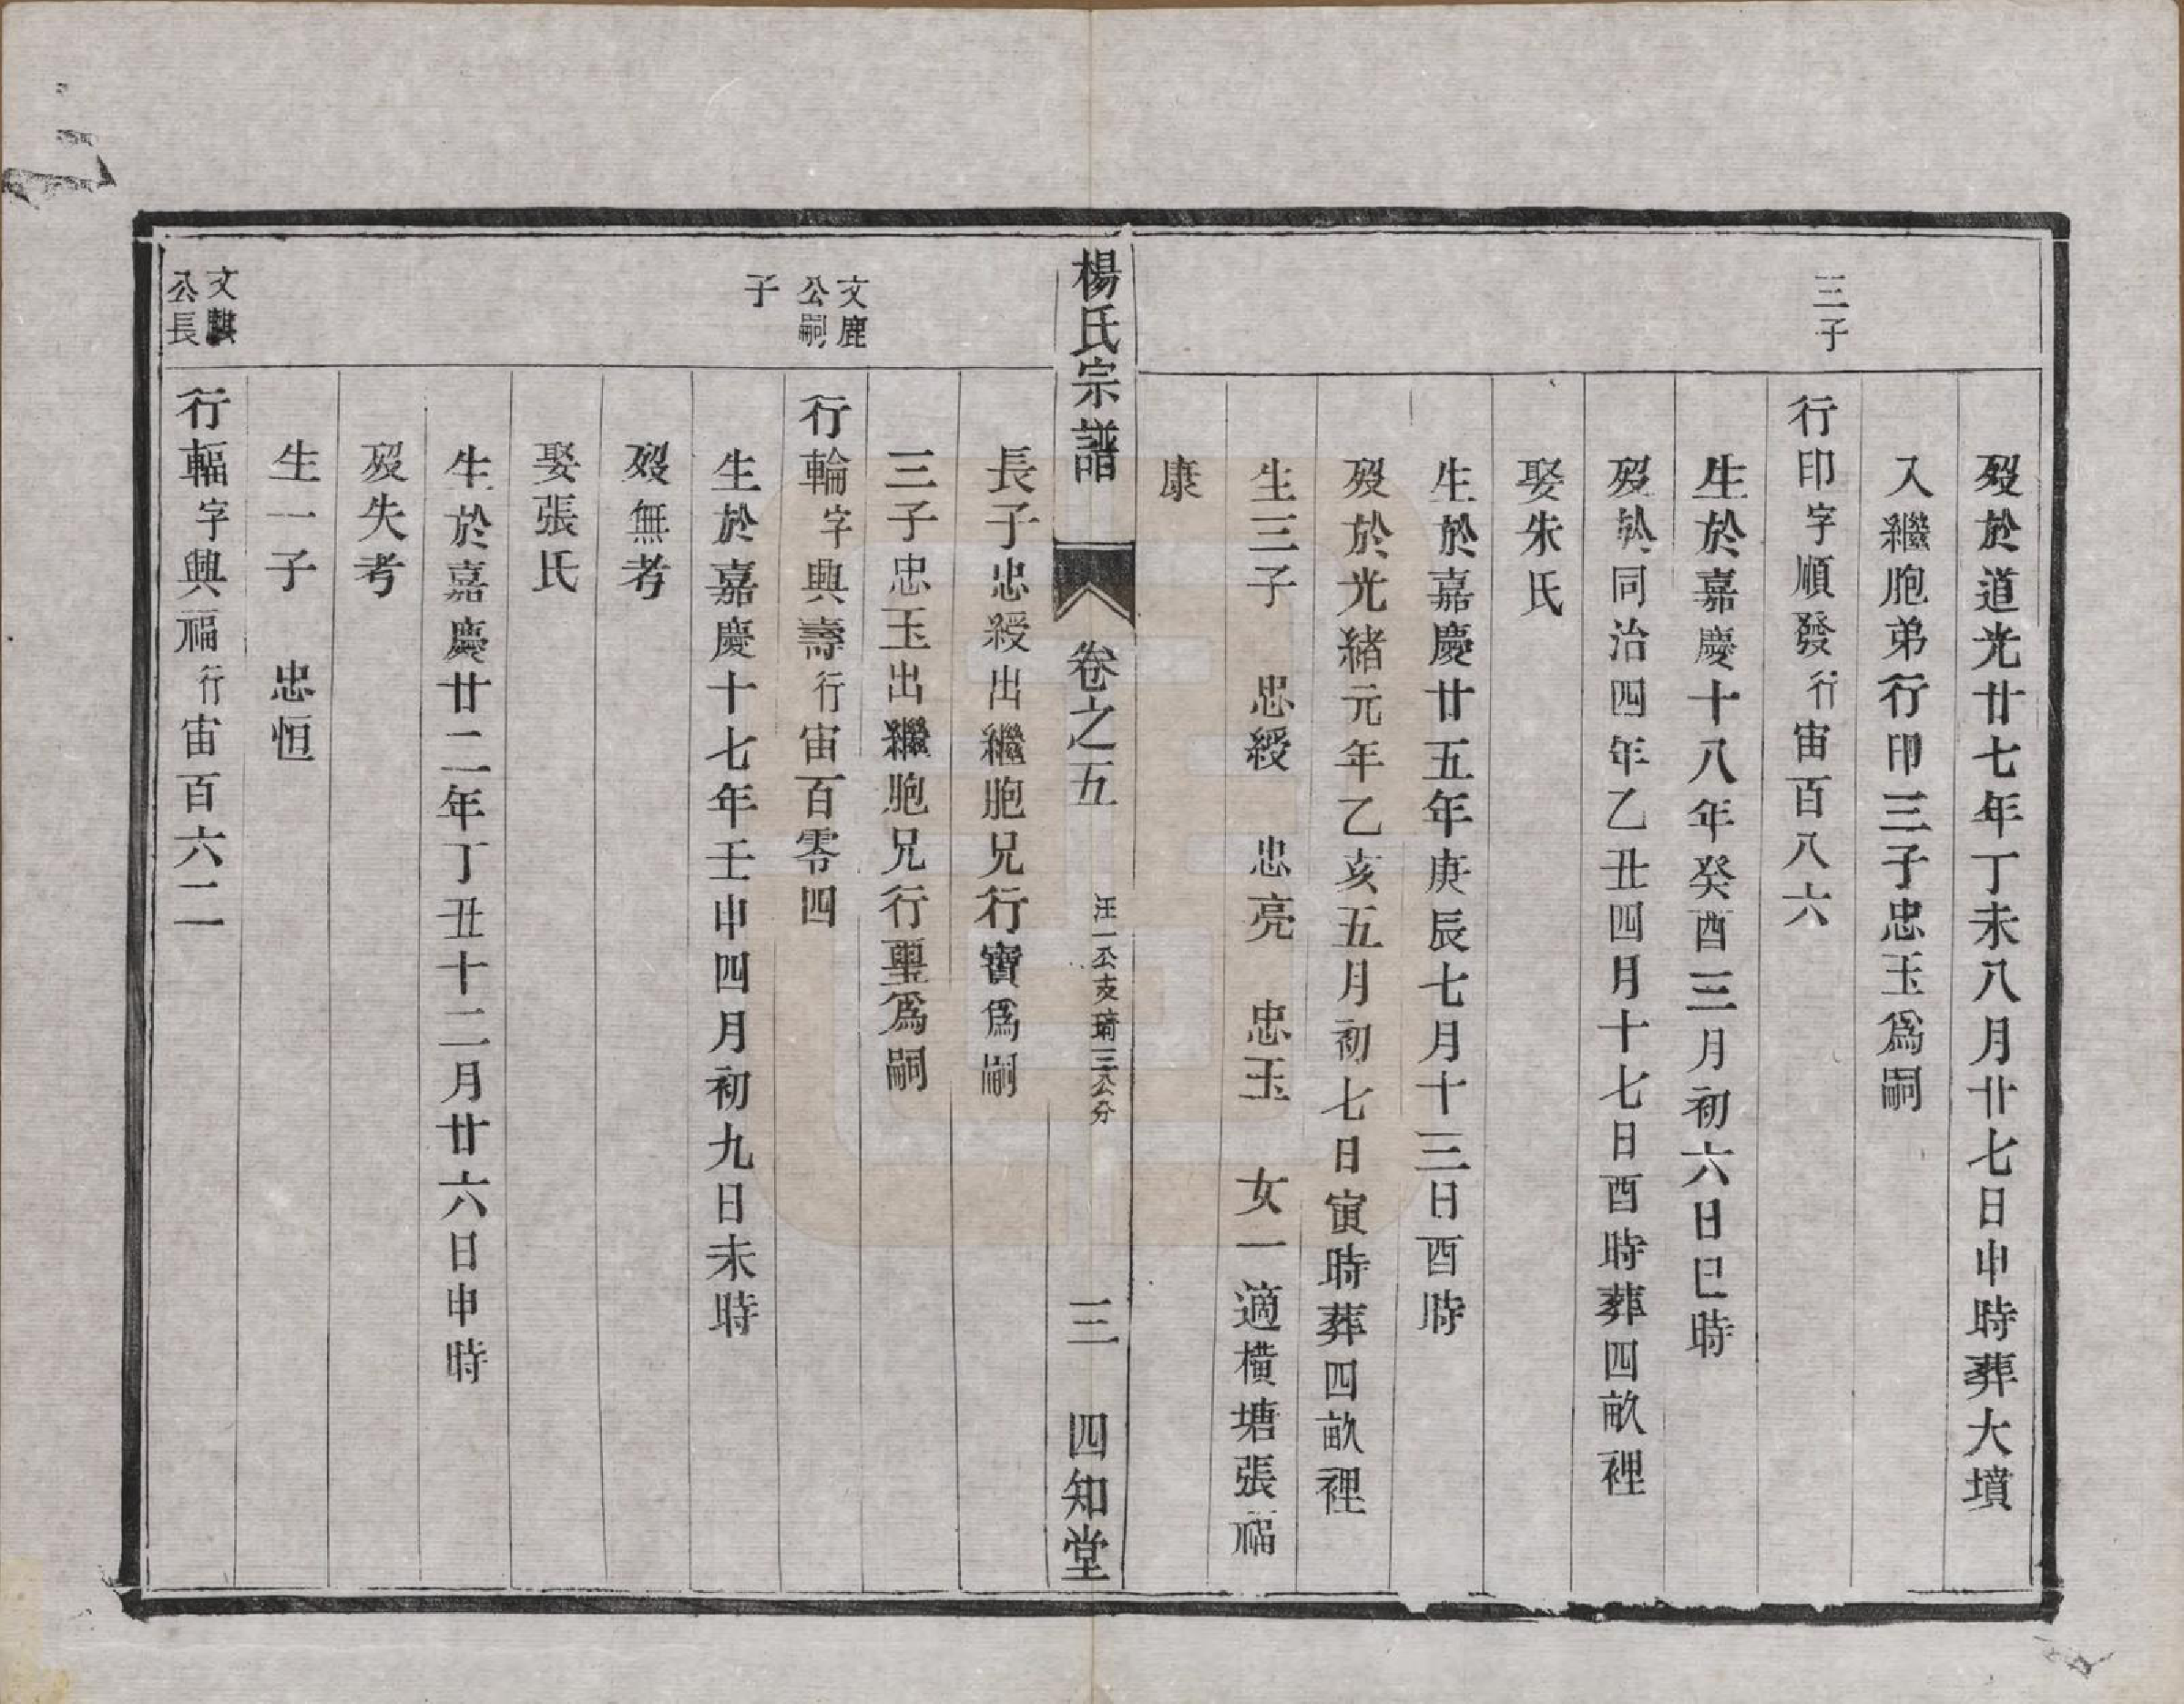 歿於道光廿七年丁未八月廿七日申時葬大墳
入繼胞弟行印三子忠玉爲嗣
三子
行印字順發行宙百八六
生於嘉慶十八年癸酉三月初六日巳時
歿於同治四年乙丑四月十七日酉時葬四畝裡
娶朱氏
生於嘉慶廿五年庚辰七月十三日酉時
歿於光緒元年乙亥五月初七日寅時葬四畝裡
生三子 忠綬 忠亮 忠玉 女一適橫塘張福
康
楊氏宗譜 卷之五 汪一公支琦三公分 三 四知堂
長子忠綬出繼胞兄行寶爲嗣
三子忠玉出繼胞兄行璽爲嗣
文鹿
公嗣
子
行輪字興壽行宙百零四
生於嘉慶十七年壬申四月初九日未時
歿無考
娶張氏
生於嘉慶廿二年丁丑十二月廿六日申時
歿失考
生一子 忠恒
文麒
公長
行輻字興福行宙百六二